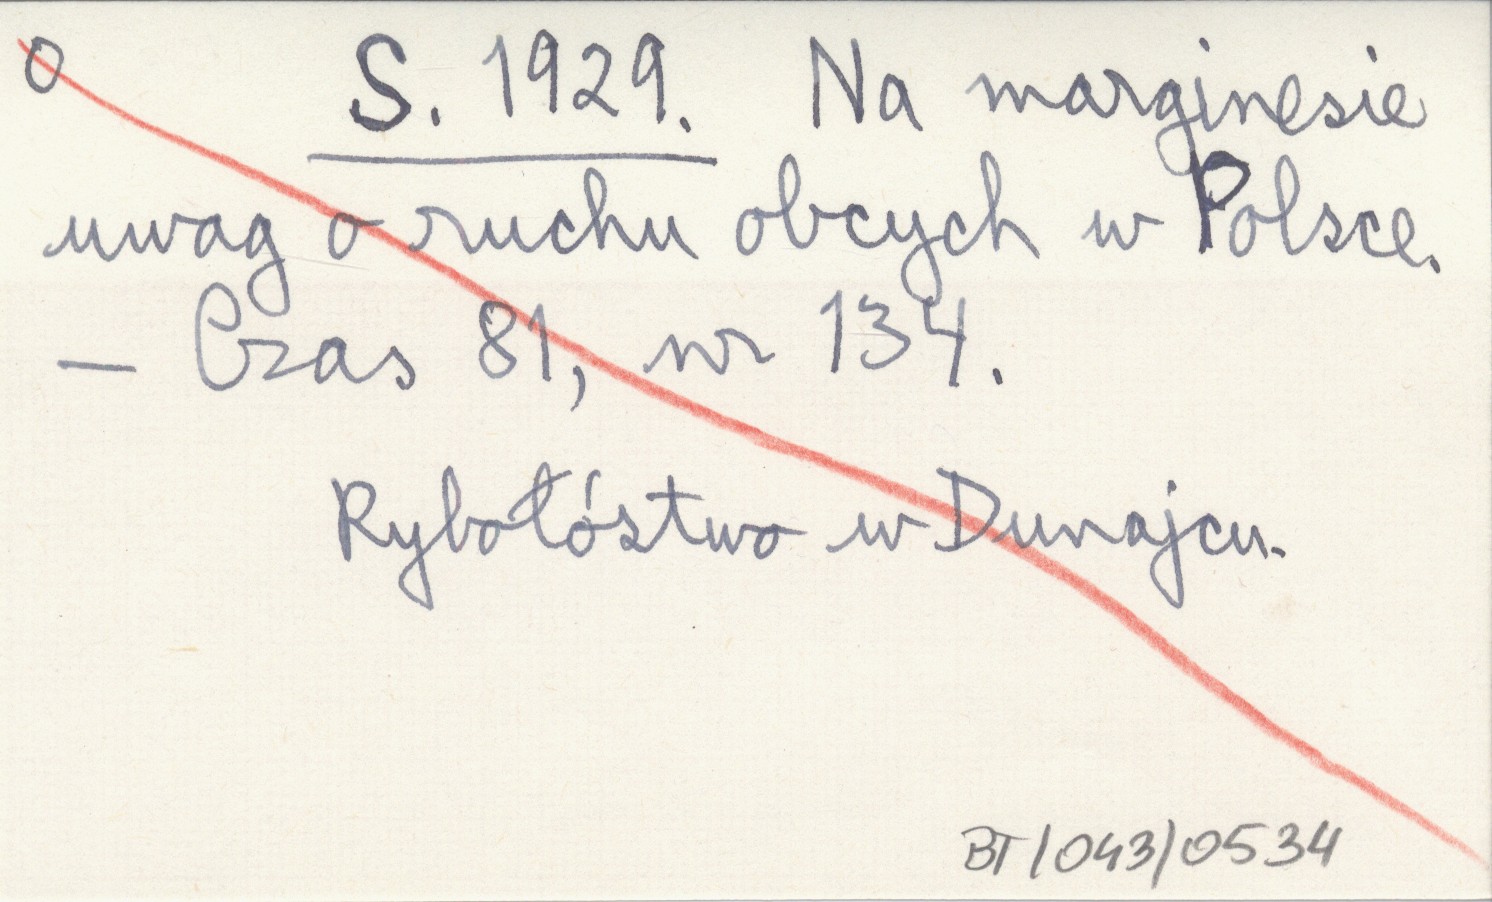 O S. 1929. Na marginesie
uwag o ruchu obcych w Polsce.
— Czas 81, nr 134.
Rybołóstwo w Dunajcu.
BT/043/0534